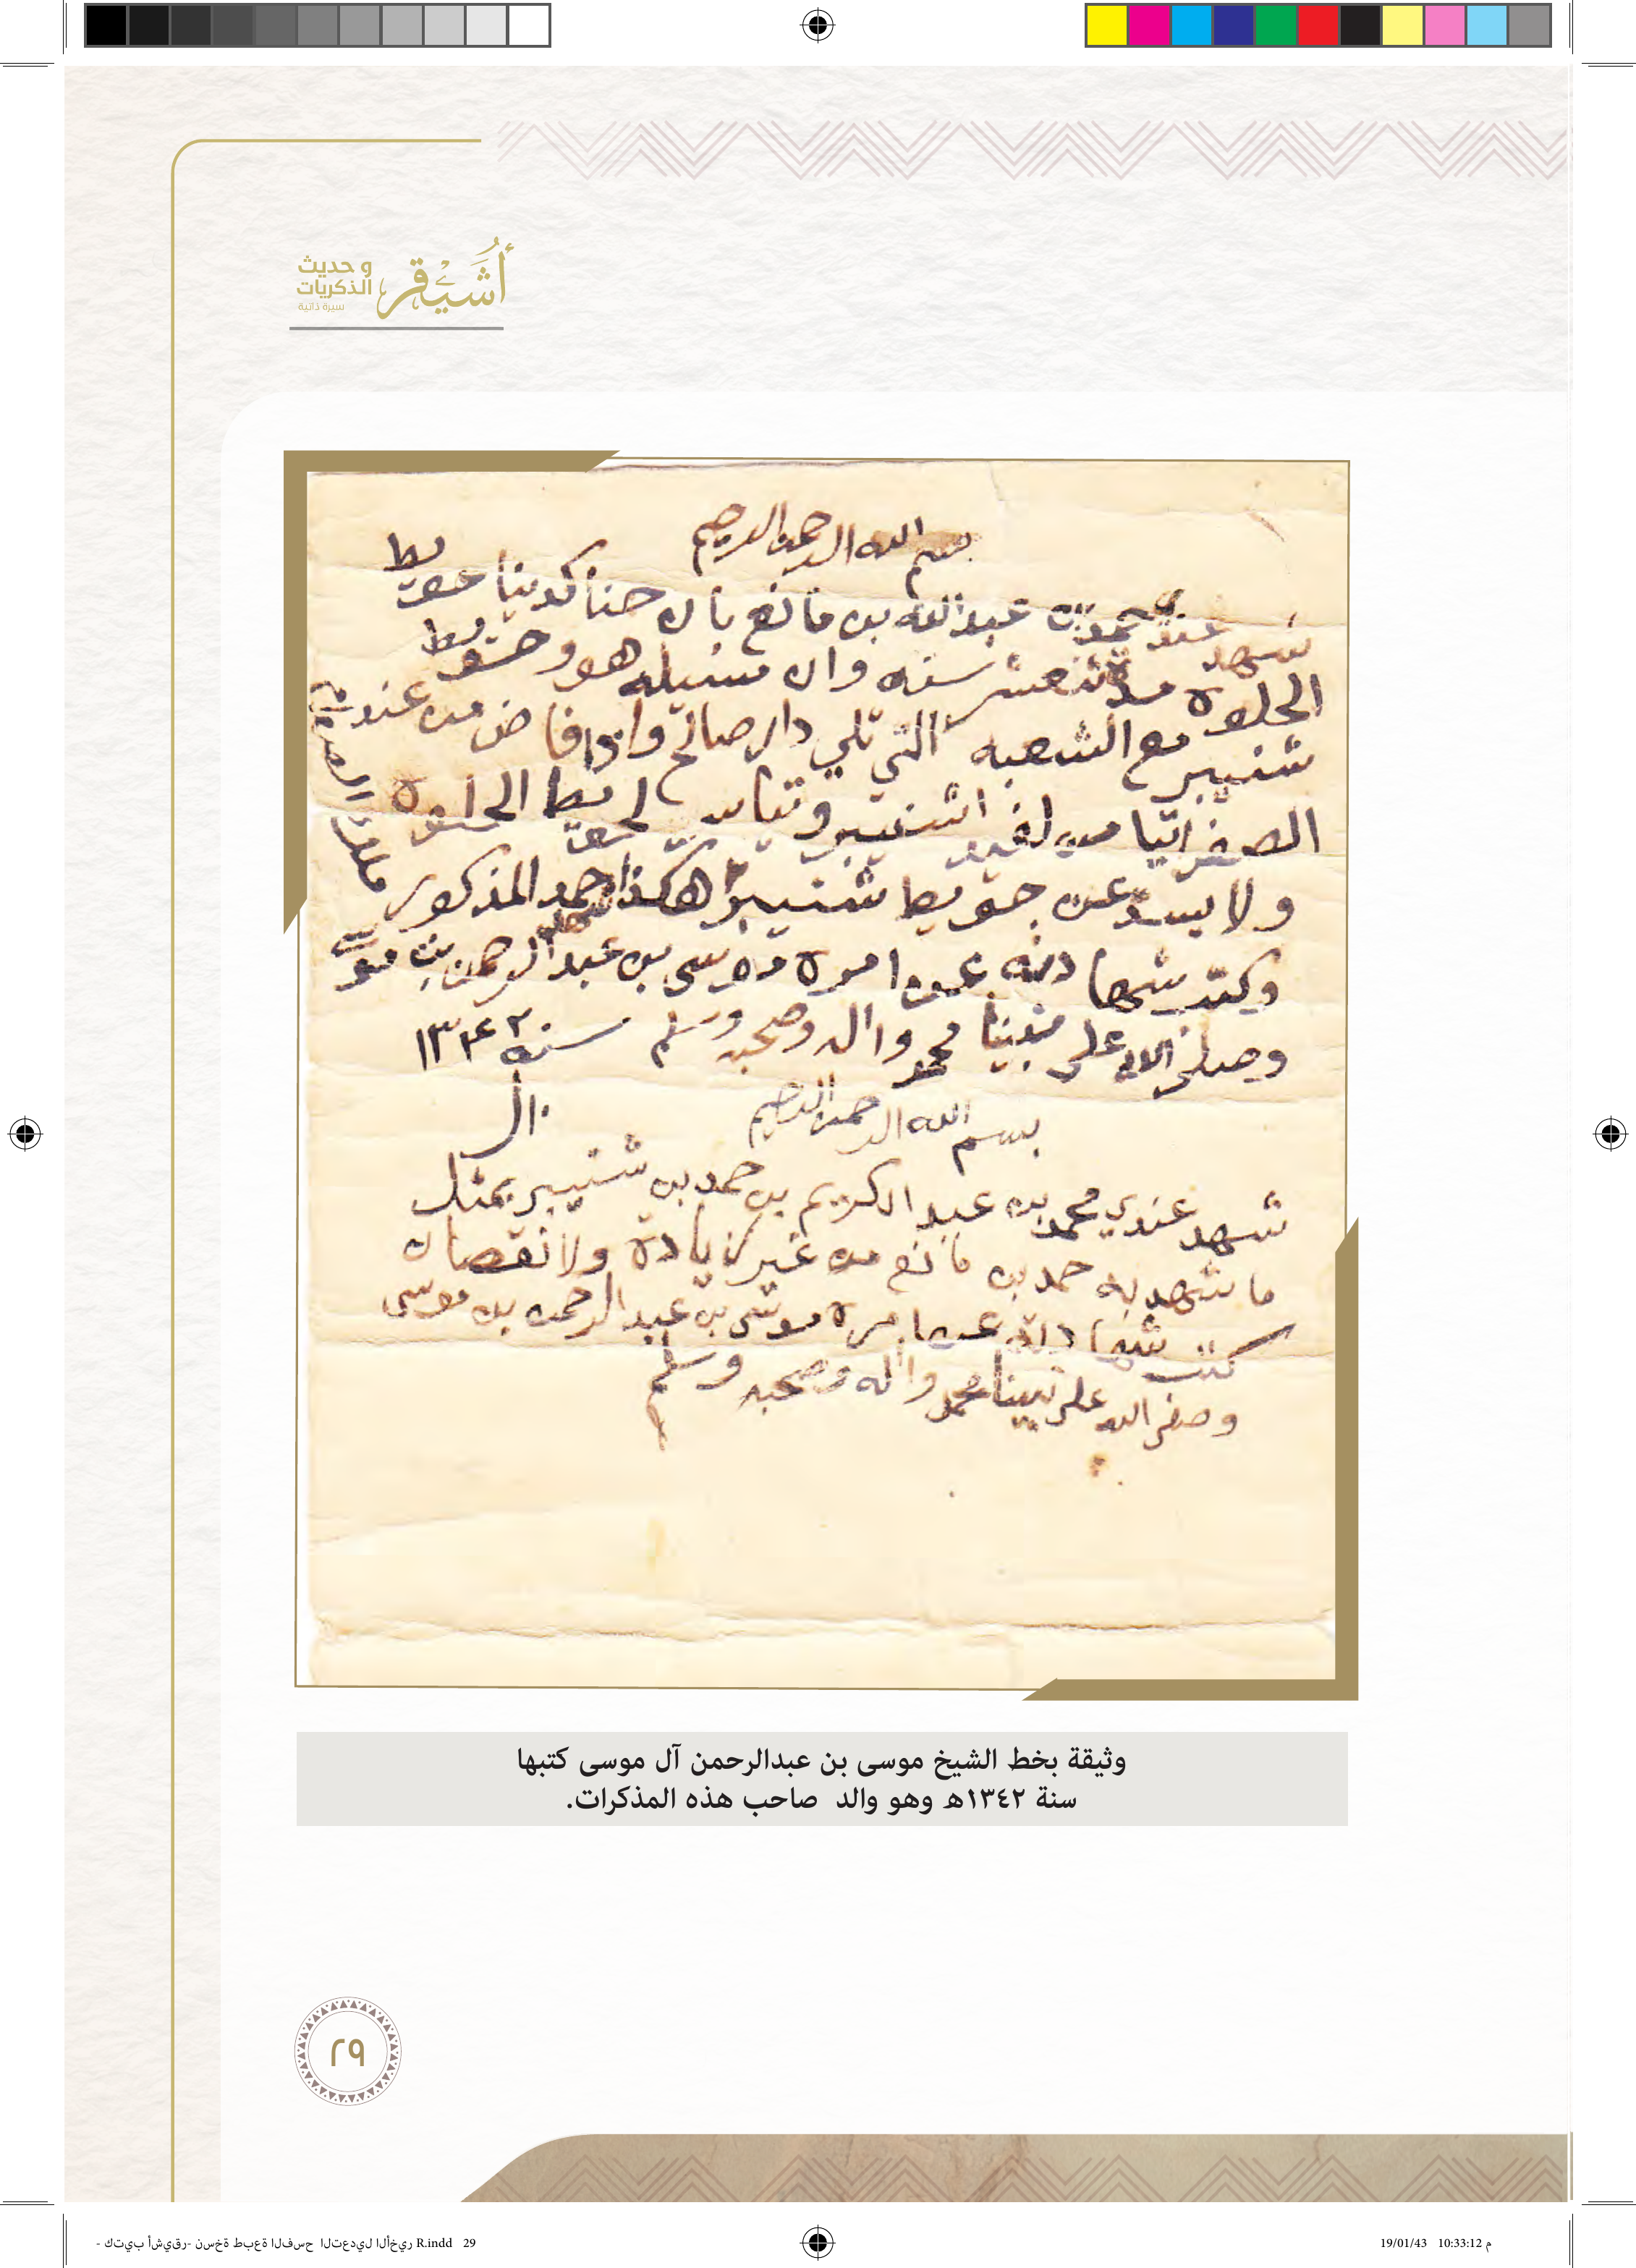 أُشَيْقر و حديث الذكريات
سيرة ذاتية
بسم الله الرحمن الرحيم
شهد عندي حمد بن عبدالله بن مانع بان حنا كدينا حويط
الحلوه مدة ثنعشر سنه وان مسيله هو وحويط
شنيبر مع الشعبه التي تلي دار صالح واذا فاض من عندهم
الصفراتيا من شنيبر لحويط الحلوه
ولا يسد عن حويط شنيبر هكذا شهد حمد المذكور
وكتب شهادته عن امره موسى بن عبدالرحمن بن موسى
وصلى الله على نبينا محمد واله وصحبه وسلم سنه ١٣٤٢
بسم الله الرحمن الرحيم
شهد عندي محمد بن عبد الكريم بن حمد بن شنيبر بمثل
ما شهد به حمد بن مانع من غير زيادة ولا نقصان
كتب شهادته عن امره موسى بن عبدالرحمن بن موسى
وصلى الله على نبينا محمد واله وصحبه وسلم
وثيقة بخط الشيخ موسى بن عبدالرحمن آل موسى كتبها
سنة ١٣٤٢هـ وهو والد صاحب هذه المذكرات.
٢٩
- كتيب أشيقر- نسخة طبعة الفسح التعديل الأخير R.indd 29
19/01/43 10:33:12 م